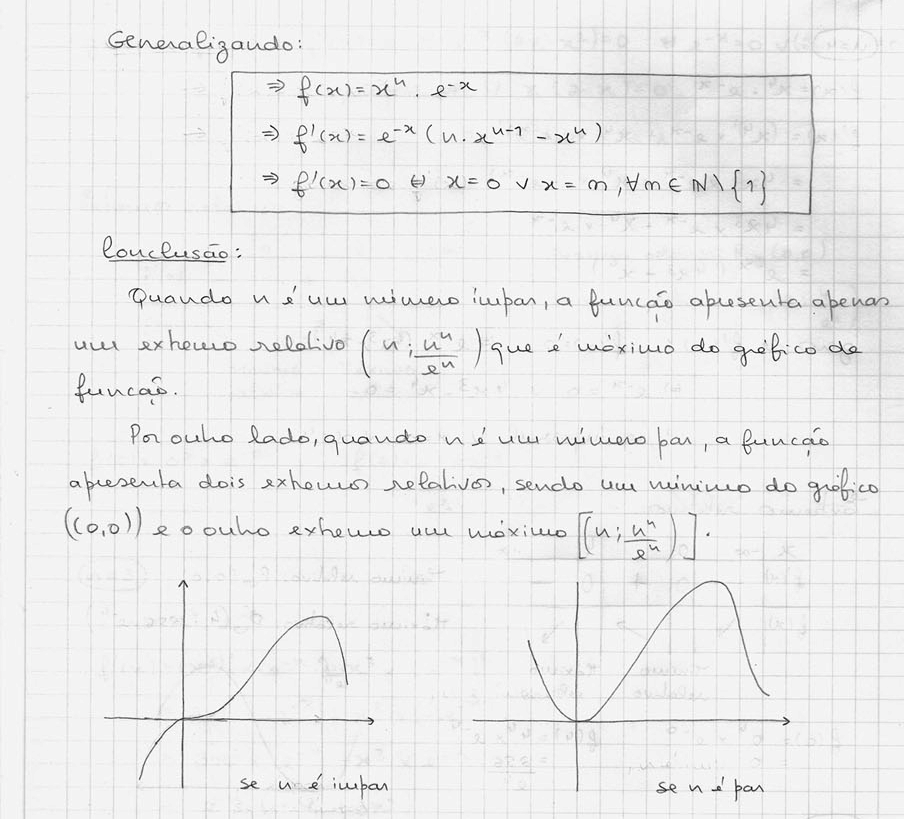 Generalizando:
⇒ f(x) = xⁿ . e⁻ˣ
⇒ f'(x) = e⁻ˣ (n . xⁿ⁻¹ − xⁿ)
⇒ f'(x) = 0 ⇔ x = 0 ∨ x = n, ∀n ∈ ℕ \ {1}
Conclusão:
Quando n é um número ímpar, a função apresenta apenas
um extremo relativo (n ; nⁿ/eⁿ) que é máximo do gráfico da
função.
Por outro lado, quando n é um número par, a função
apresenta dois extremos relativos, sendo um mínimo do gráfico
((0,0)) e o outro extremo um máximo [(n ; nⁿ/eⁿ)].
se n é ímpar
se n é par